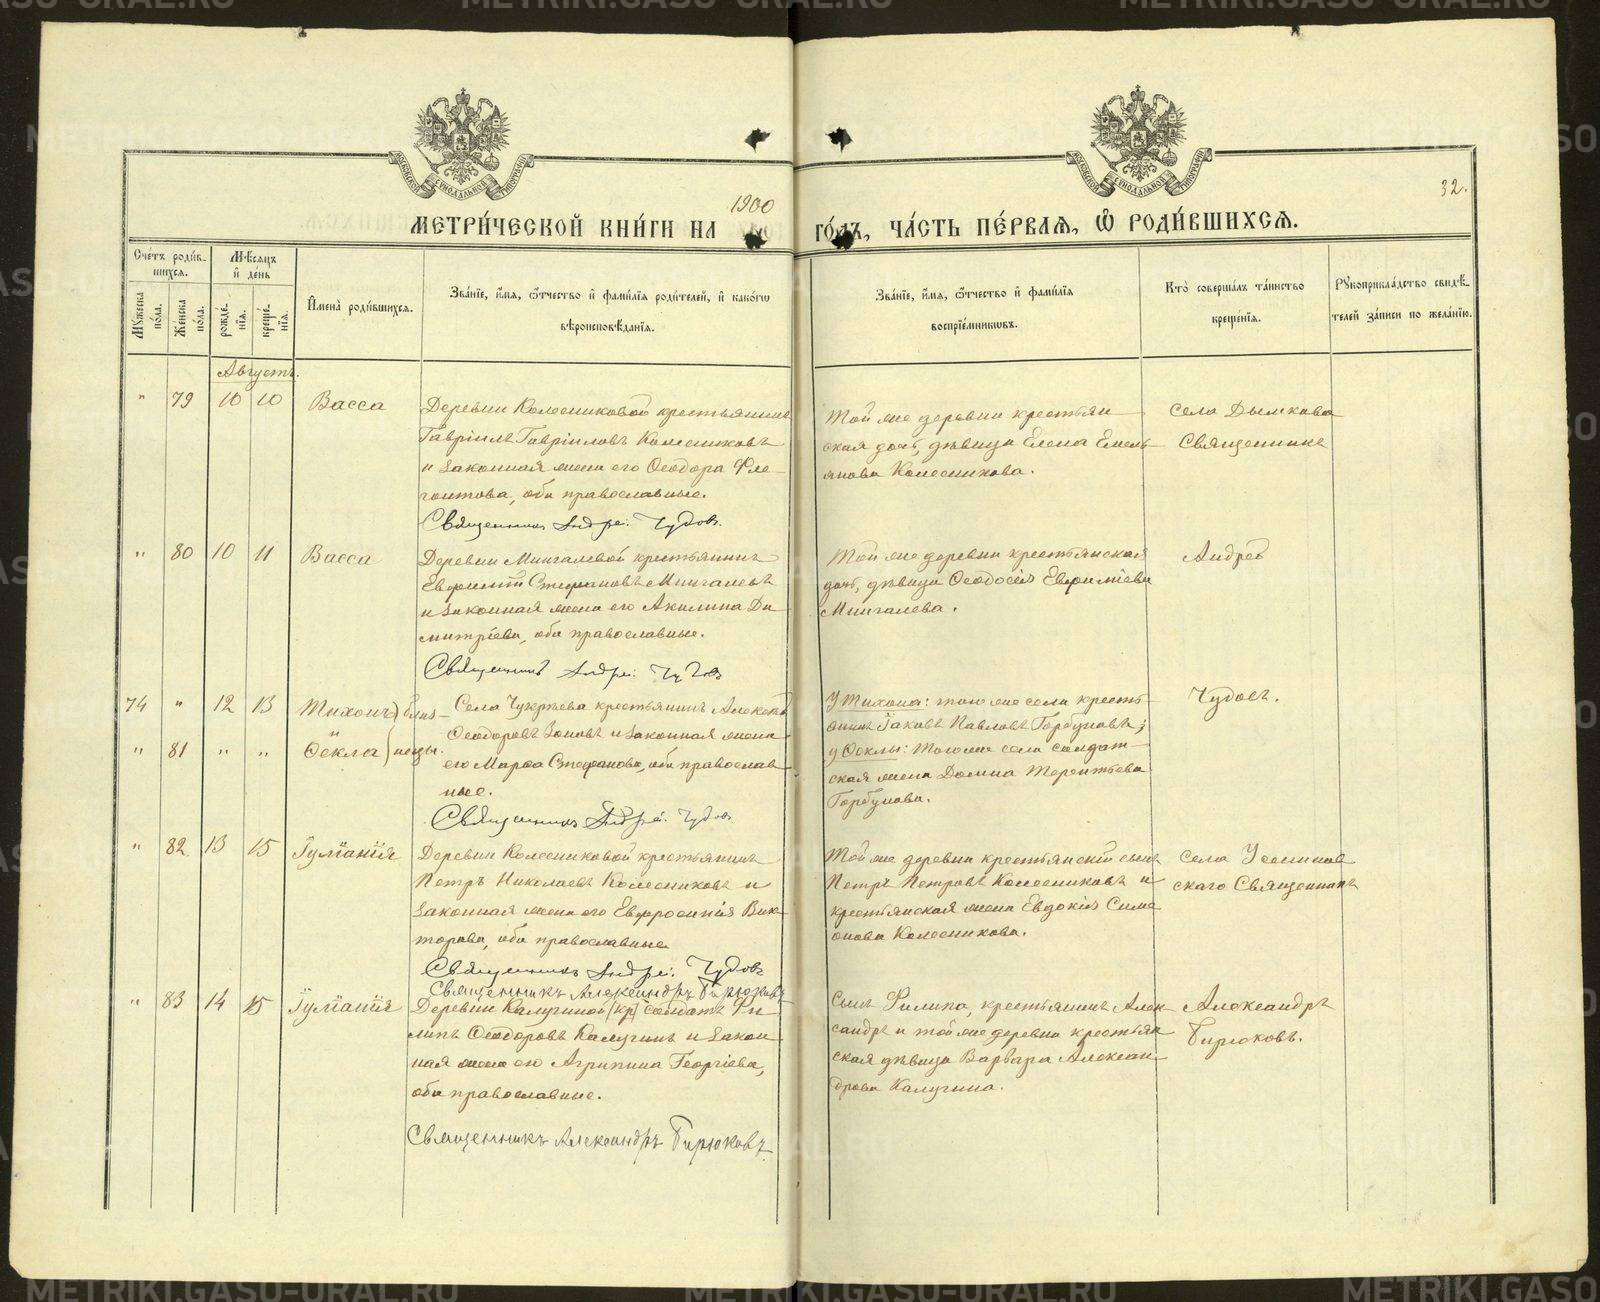 METRIKI.GASO-URAL.RU
1900
32.
МЕТРИ́ЧЕСКОЙ КНИ́ГИ НА
ГО́ДЪ, ЧА́СТЬ ПЕ́РВАЯ, Ѿ РОДИ́ВШИХСЯ.
Сче́тъ роди́в-
шихся.
Мѣ́сяцъ
и҆ де́нь
Му́жеска по́ла.
Же́нска по́ла.
рожде́нїя.
креще́нїя.
И҆мена̀ роди́вшихся.
Зва́нїе, и҆́мя, ѻ҆́тчество и҆ фами́лїя роди́телей, и҆ како́гѡ
вѣроисповѣ́данїя.
Зва́нїе, и҆́мя, ѻ҆́тчество и҆ фами́лїя
воспрїе́мникѡвъ.
Кто̀ соверша́лъ та́инство
креще́нїя.
Рукоприкла́дство свидѣ́-
телей за́писи по жела́нїю.
Августъ.
" 79 10 10 Васса
Деревни Колесниковой крестьянинъ
Гавріилъ Гавріиловъ Колесниковъ
и законная жена его Ѳеодора Фле-
гонтова, оба православные.
Священникъ Андрей Чудовъ.
Той же деревни крестьян-
ская дочь, дѣвица Елена Емель-
янова Колесникова.
Села Дымкова
Священникъ
" 80 10 11 Васса
Деревни Мингалевой крестьянинъ
Евфимій Стефановъ Мингалевъ
и законная жена его Акилина Ди-
митріева, оба православные.
Священникъ Андрей Чудовъ
Той же деревни крестьянская
дочь, дѣвица Ѳеодосія Евфиміева
Мингалева.
Андрей
74 " 12 13 Тихонъ } близ-
" 81 " " Ѳекла } нецы.
Села Чукреева крестьянинъ Алексѣй
Ѳеодоровъ Зоновъ и законная жена
его Марѳа Стефанова, оба православ-
ные.
Священникъ Андрей Чудовъ
У Тихона: того же села кресть-
янинъ Іаковъ Павловъ Горбуновъ;
у Ѳеклы: того же села солдат-
ская жена Домна Терентьева
Горбунова.
Чудовъ.
" 82 13 15 Іуліанія
Деревни Колесниковой крестьянинъ
Петръ Николаевъ Колесниковъ и
законная жена его Евфросинія Вик-
торова, оба православные
Священникъ Андрей Чудовъ
Священникъ Александръ Бирюковъ
Той же деревни крестьянскій сынъ
Петръ Петровъ Колесниковъ и
крестьянская жена Евдокія Симе-
онова Колесникова.
Села Усенинов-
скаго Священникъ
" 83 14 15 Іуліанія
Деревни Калугиной (кр) солдатъ Фи-
липъ Ѳеодоровъ Калугинъ и закон-
ная жена его Агрипина Георгіева,
оба православные.
Священникъ Александръ Бирюковъ
Сынъ Филипа, крестьянинъ Алек-
сандръ и той же деревни крестьян-
ская дѣвица Варвара Алексан-
дрова Калугина.
Александръ
Бирюковъ.